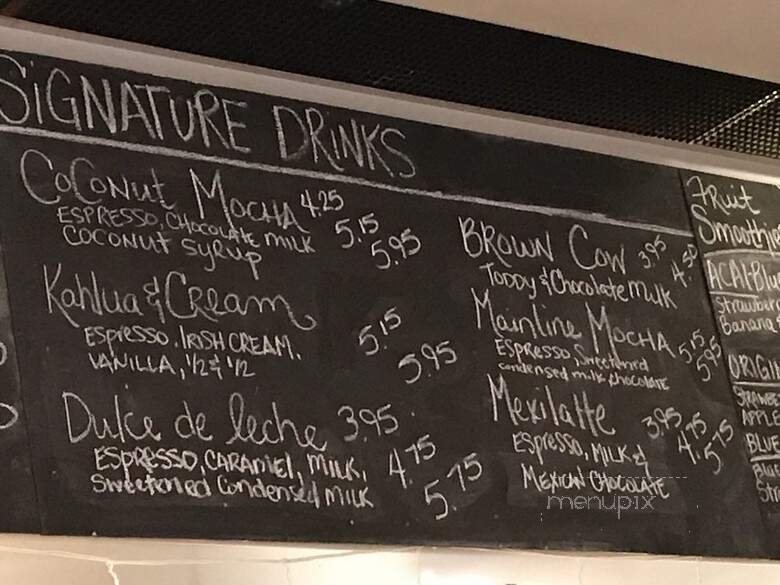 SiGNATURE DRiNKS
CoCoNut MOCHA 4.25
ESPRESSO, CHOCOLATE MILK 5.15
COCONUT SYRUP 5.95
Kahlua & CREAM
ESPRESSO, IRISH CREAM, 5.15
VANILLA, 1/2 & 1/2 5.95
Dulce de leche 3.95
ESPRESSO, CARAMEL, MILK, 4.75
Sweetened Condensed MILK 5.75
BROWN COW 3.95
TODDY & Chocolate MILK 4.50
Mainline MOCHA 5.15
ESPRESSO, Sweetened 5.95
condensed milk, chocolate
Mexilatte 3.95
ESPRESSO, MILK & 4.75
MEXICAN CHOCOLATE 5.75
FRuit
Smoothie
ACAI-Blu
Strawber
Banana
ORIGI
STRAWB
APPL
BLUE
menupix